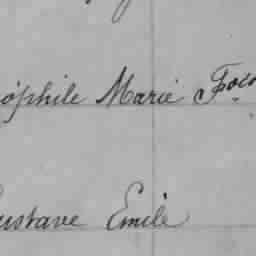 óphile Marie Foco
ustave Emile